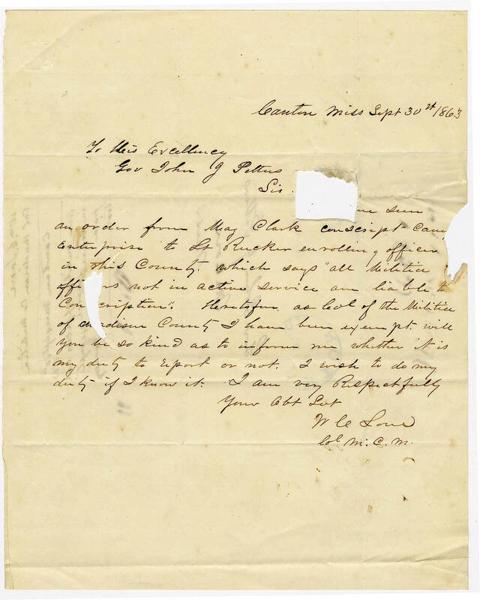 Canton Miss Sept 30th 1863
To His Excellency
Gov John J Pettus
Sir.
seen
an order from Maj Clark conscript Camp
Enterprise to Lt Rucker enrolling officer
in this County. which says "all Militia
officers not in active service are liable to
Conscription". Heretofore as Col of the Militia
of Madison County I have been exempt. will
you be so kind as to inform me whether it is
my duty to report or not. I wish to do my
duty if I know it. I am very Respectfully
Your Obt Svt
W C Love
Col M. C. M.